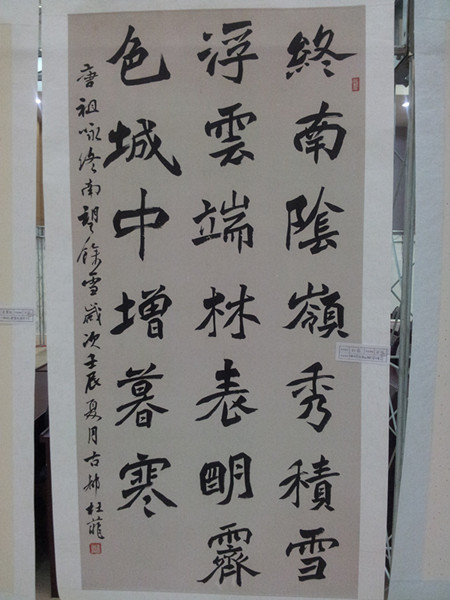 終南陰嶺秀積雪
浮雲端林表明霽
色城中增暮寒
唐祖咏終南望餘雪歲次壬辰夏月古都杜